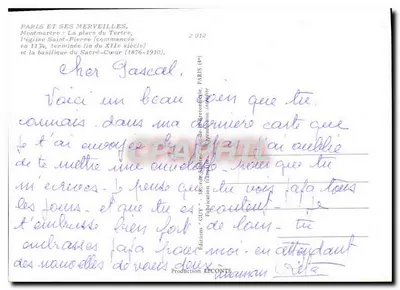 PARIS ET SES MERVEILLES.
Montmartre : La place du Tertre,
l'église Saint-Pierre (commencée
en 1134, terminée fin du XIIe siècle)
et la basilique du Sacré-Cœur (1876-1910).
2 012
Cher Pascal.
Voici un beau coin que tu
connais. dans ma dernière carte que
je t'ai envoyée j'ai oublié
de te mettre une enveloppe pour que tu
m'écrives - je pense que tu vois papa tous
les jours. et que tu es content. je
t'embrasse bien fort de loin - tu
embrasses papa pour moi - en attendant
des nouvelles de vous deux -
maman
Production LECONTE